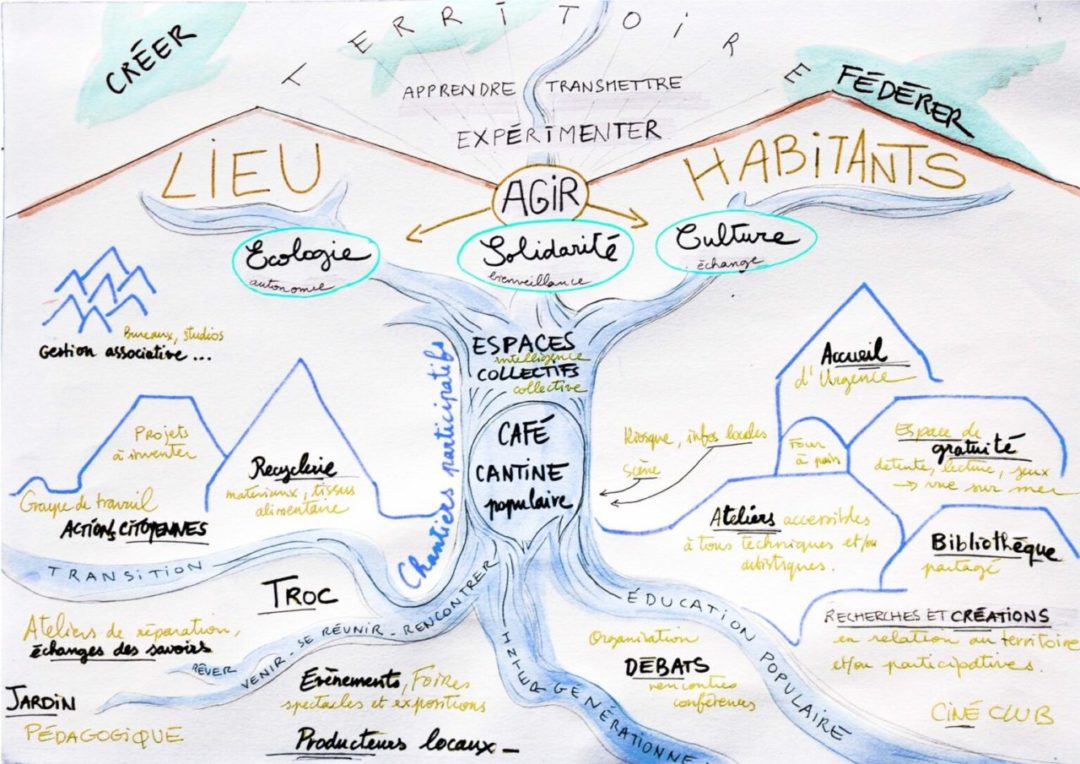 CRÉER
TERRITOIRE
FÉDÉRER
APPRENDRE TRANSMETTRE
EXPÉRIMENTER
LIEU
HABITANTS
AGIR
Ecologie
autonomie
Solidarité
bienveillance
Culture
échange
Bureaux, studios
Gestion associative...
ESPACES
intelligence
COLLECTIFS
collective
CAFÉ
CANTINE
populaire
Chantiers participatifs
Projets
à inventer
Groupe de travail
ACTIONS CITOYENNES
Recyclerie
matériaux, tissus
alimentaire
Accueil
d'Urgence
Kiosque, infos locales
scène
Four
à pain
Espace de
gratuité
détente, lecture, jeux
→ vue sur mer
Ateliers accessibles
à tous techniques et/ou
artistiques.
Bibliothèque
partagé
RECHERCHES ET CRÉATIONS
en relation au territoire
et/ou participatives.
CINÉ CLUB
TRANSITION
TROC
Ateliers de réparation,
échanges des savoirs
RÊVER
VENIR - SE RÉUNIR - RENCONTRER
JARDIN
PÉDAGOGIQUE
Evènements, Foires
spectacles et expositions
Producteurs locaux -
INTERGÉNÉRATIONNEL
Organisation
DÉBATS
rencontres
conférences
ÉDUCATION POPULAIRE